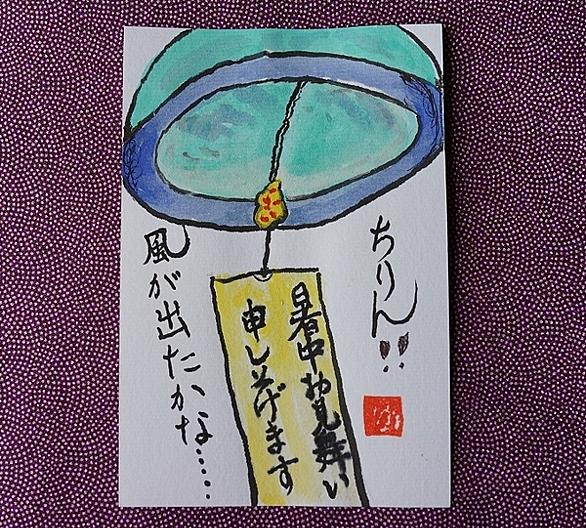 ちりん!!
暑中お見舞い
申し上げます
風が出たかな……